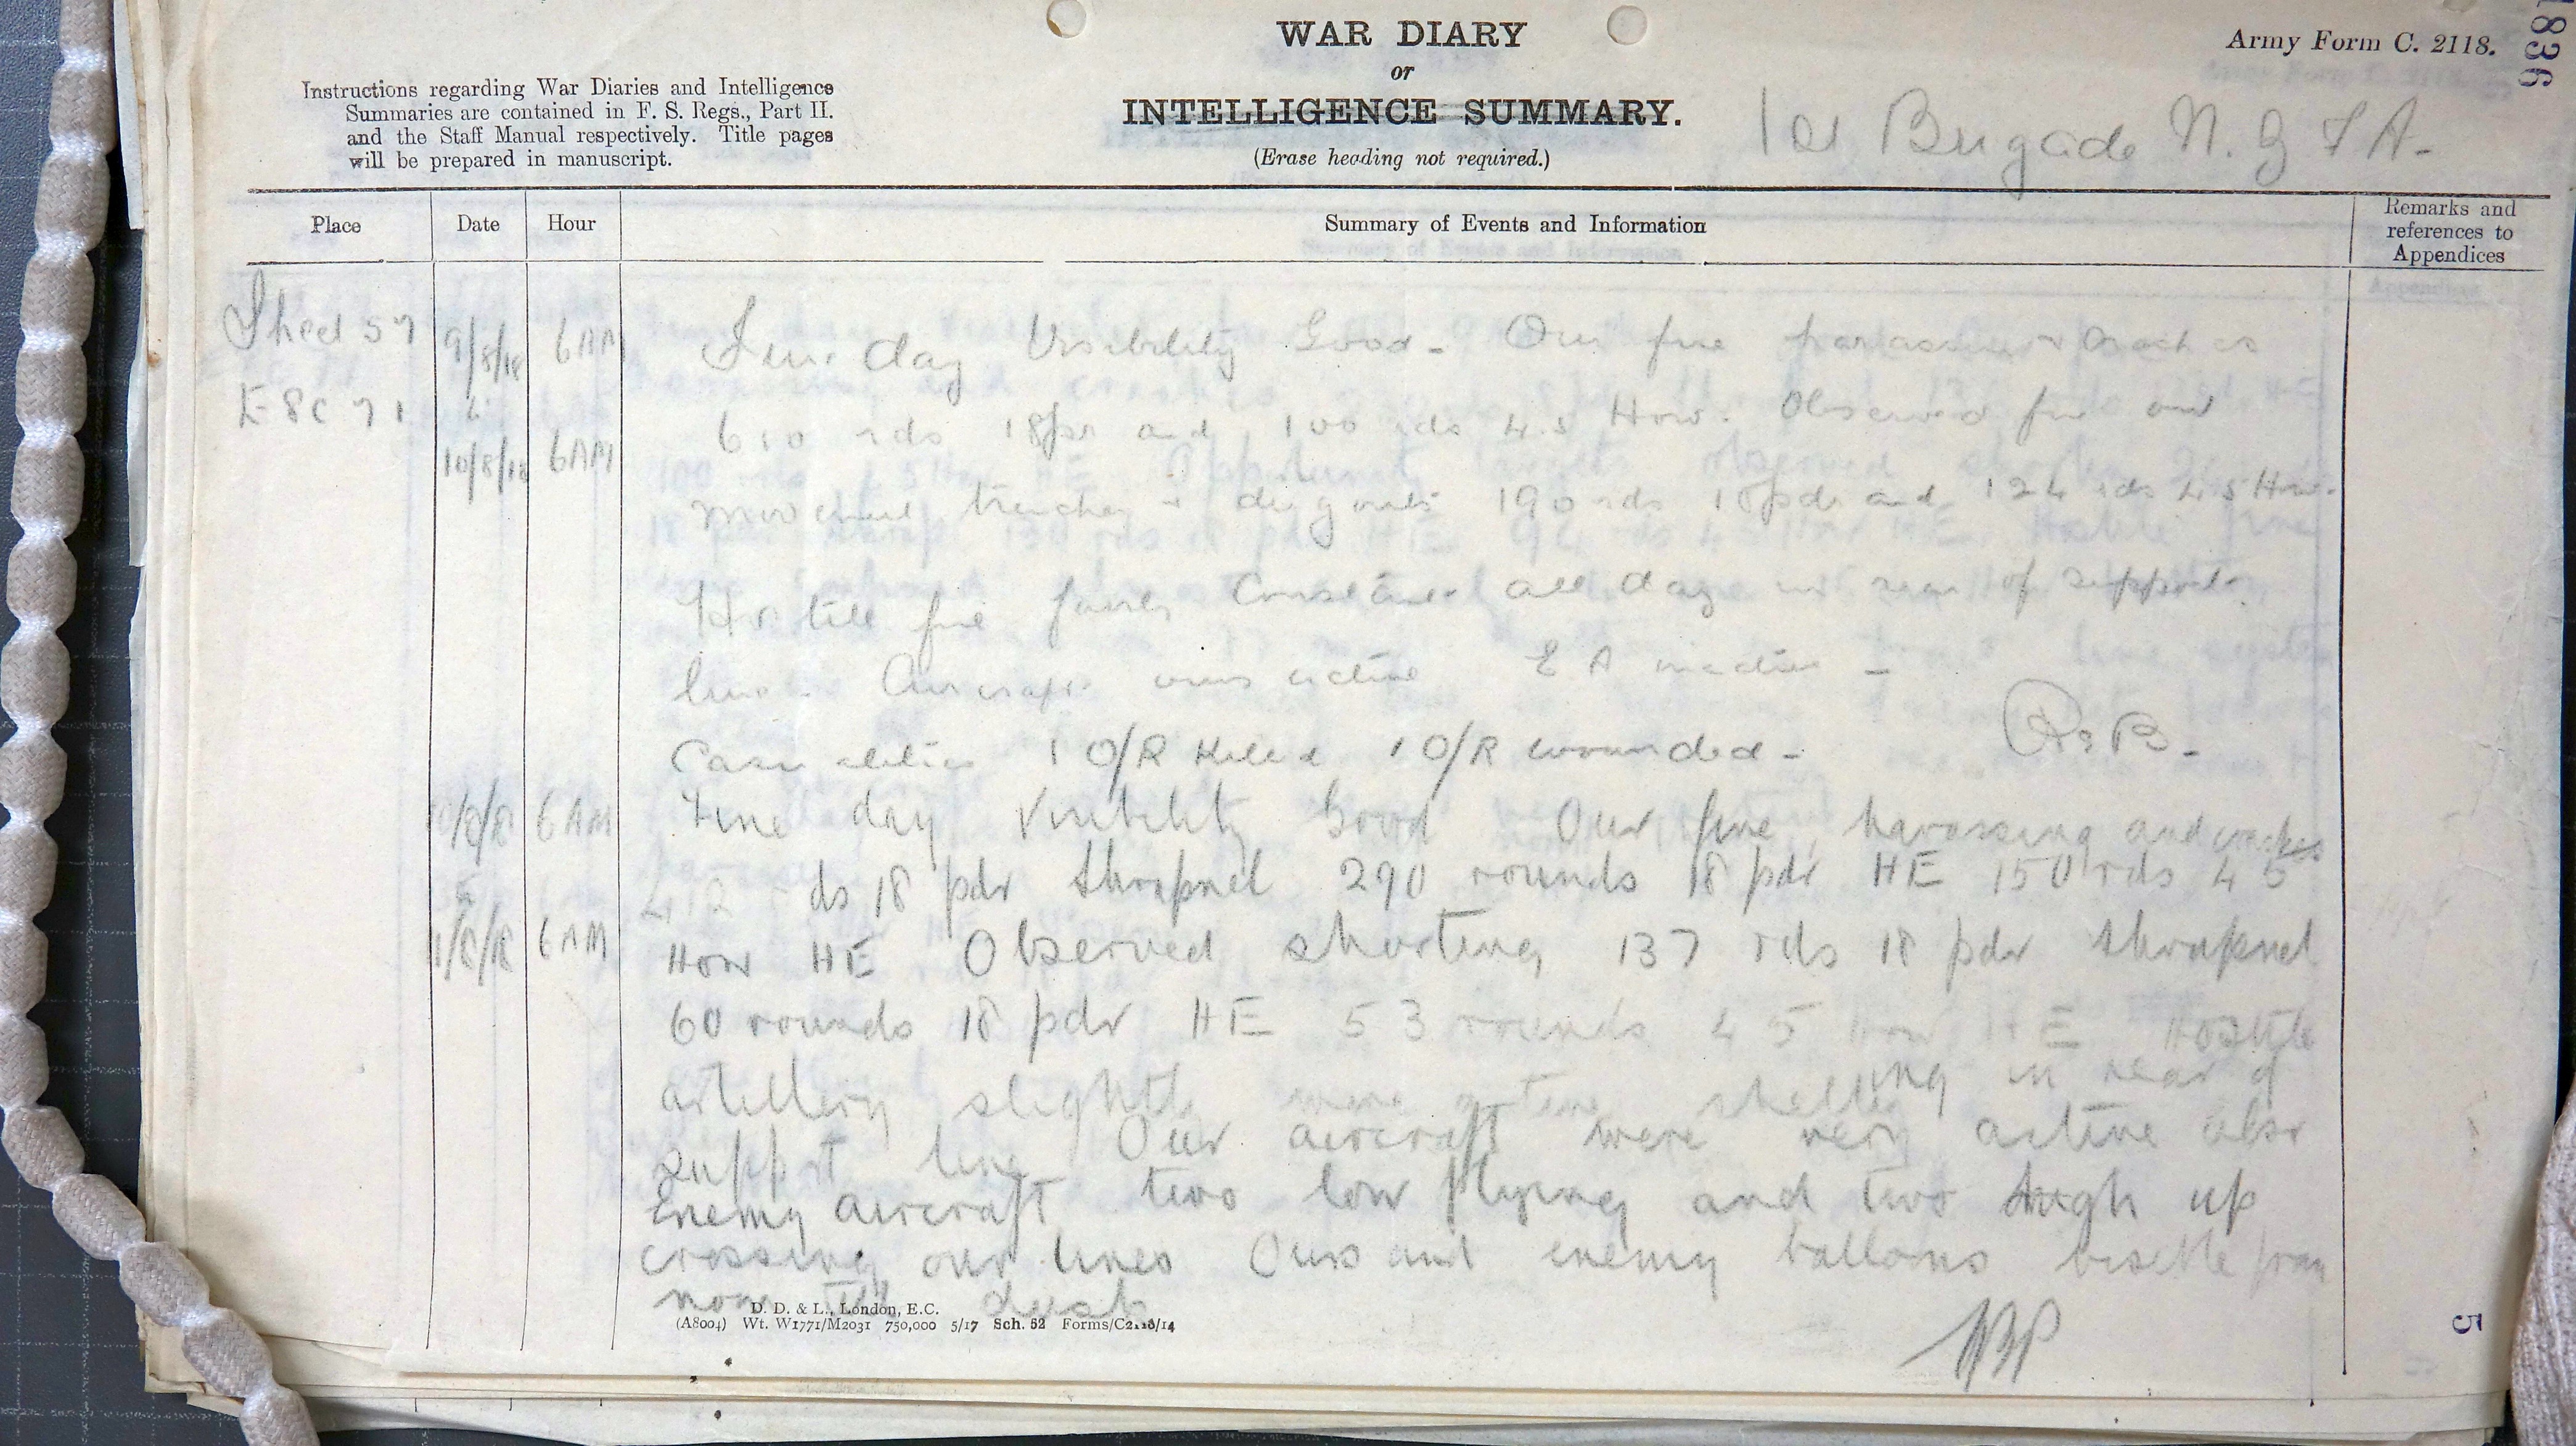 WAR DIARY
or
INTELLIGENCE SUMMARY.
(Erase heading not required.)
Army Form C. 2118.
1836
Instructions regarding War Diaries and Intelligence
Summaries are contained in F. S. Regs., Part II.
and the Staff Manual respectively. Title pages
will be prepared in manuscript.
1st Brigade N. Z F A.
Place
Date
Hour
Summary of Events and Information
Remarks and
references to
Appendices
Sheet 57
E 8 C 7 1
9/8/18 6 AM
10/8/18 6 AM
Fine day Visibility Good - Our fire harassing & crashes
610 rds 18pr and 100 rds 4.5 How. Observed fire on
movement trenches + dugouts 190 rds 18pdr and 124 rds 4.5 How.
Hostile fire fairly constant all day in rear of support
line. Aircraft ours active E A inactive -
Casualties 1 O/R killed 1 O/R wounded -
10/8/18 6 AM
to
11/8/18 6 AM
Fine day Visibility Good Our fire, harassing and crashes
412 rds 18 pdr Shrapnel 290 rounds 18 pdr HE 150 rds 4 5
How HE Observed shooting 137 rds 18 pdr Shrapnel
60 rounds 18 pdr HE 53 rounds 4 5 How HE Hostile
artillery slightly more active shelling in rear of
support line Our aircraft were very active also
Enemy aircraft two low flying and two high up
crossing our lines Ours and enemy balloons visible from
noon till dusk
D. D. & L., London, E.C.
(A8004) Wt. W1771/M2031 750,000 5/17 Sch. 52 Forms/C2118/14
5